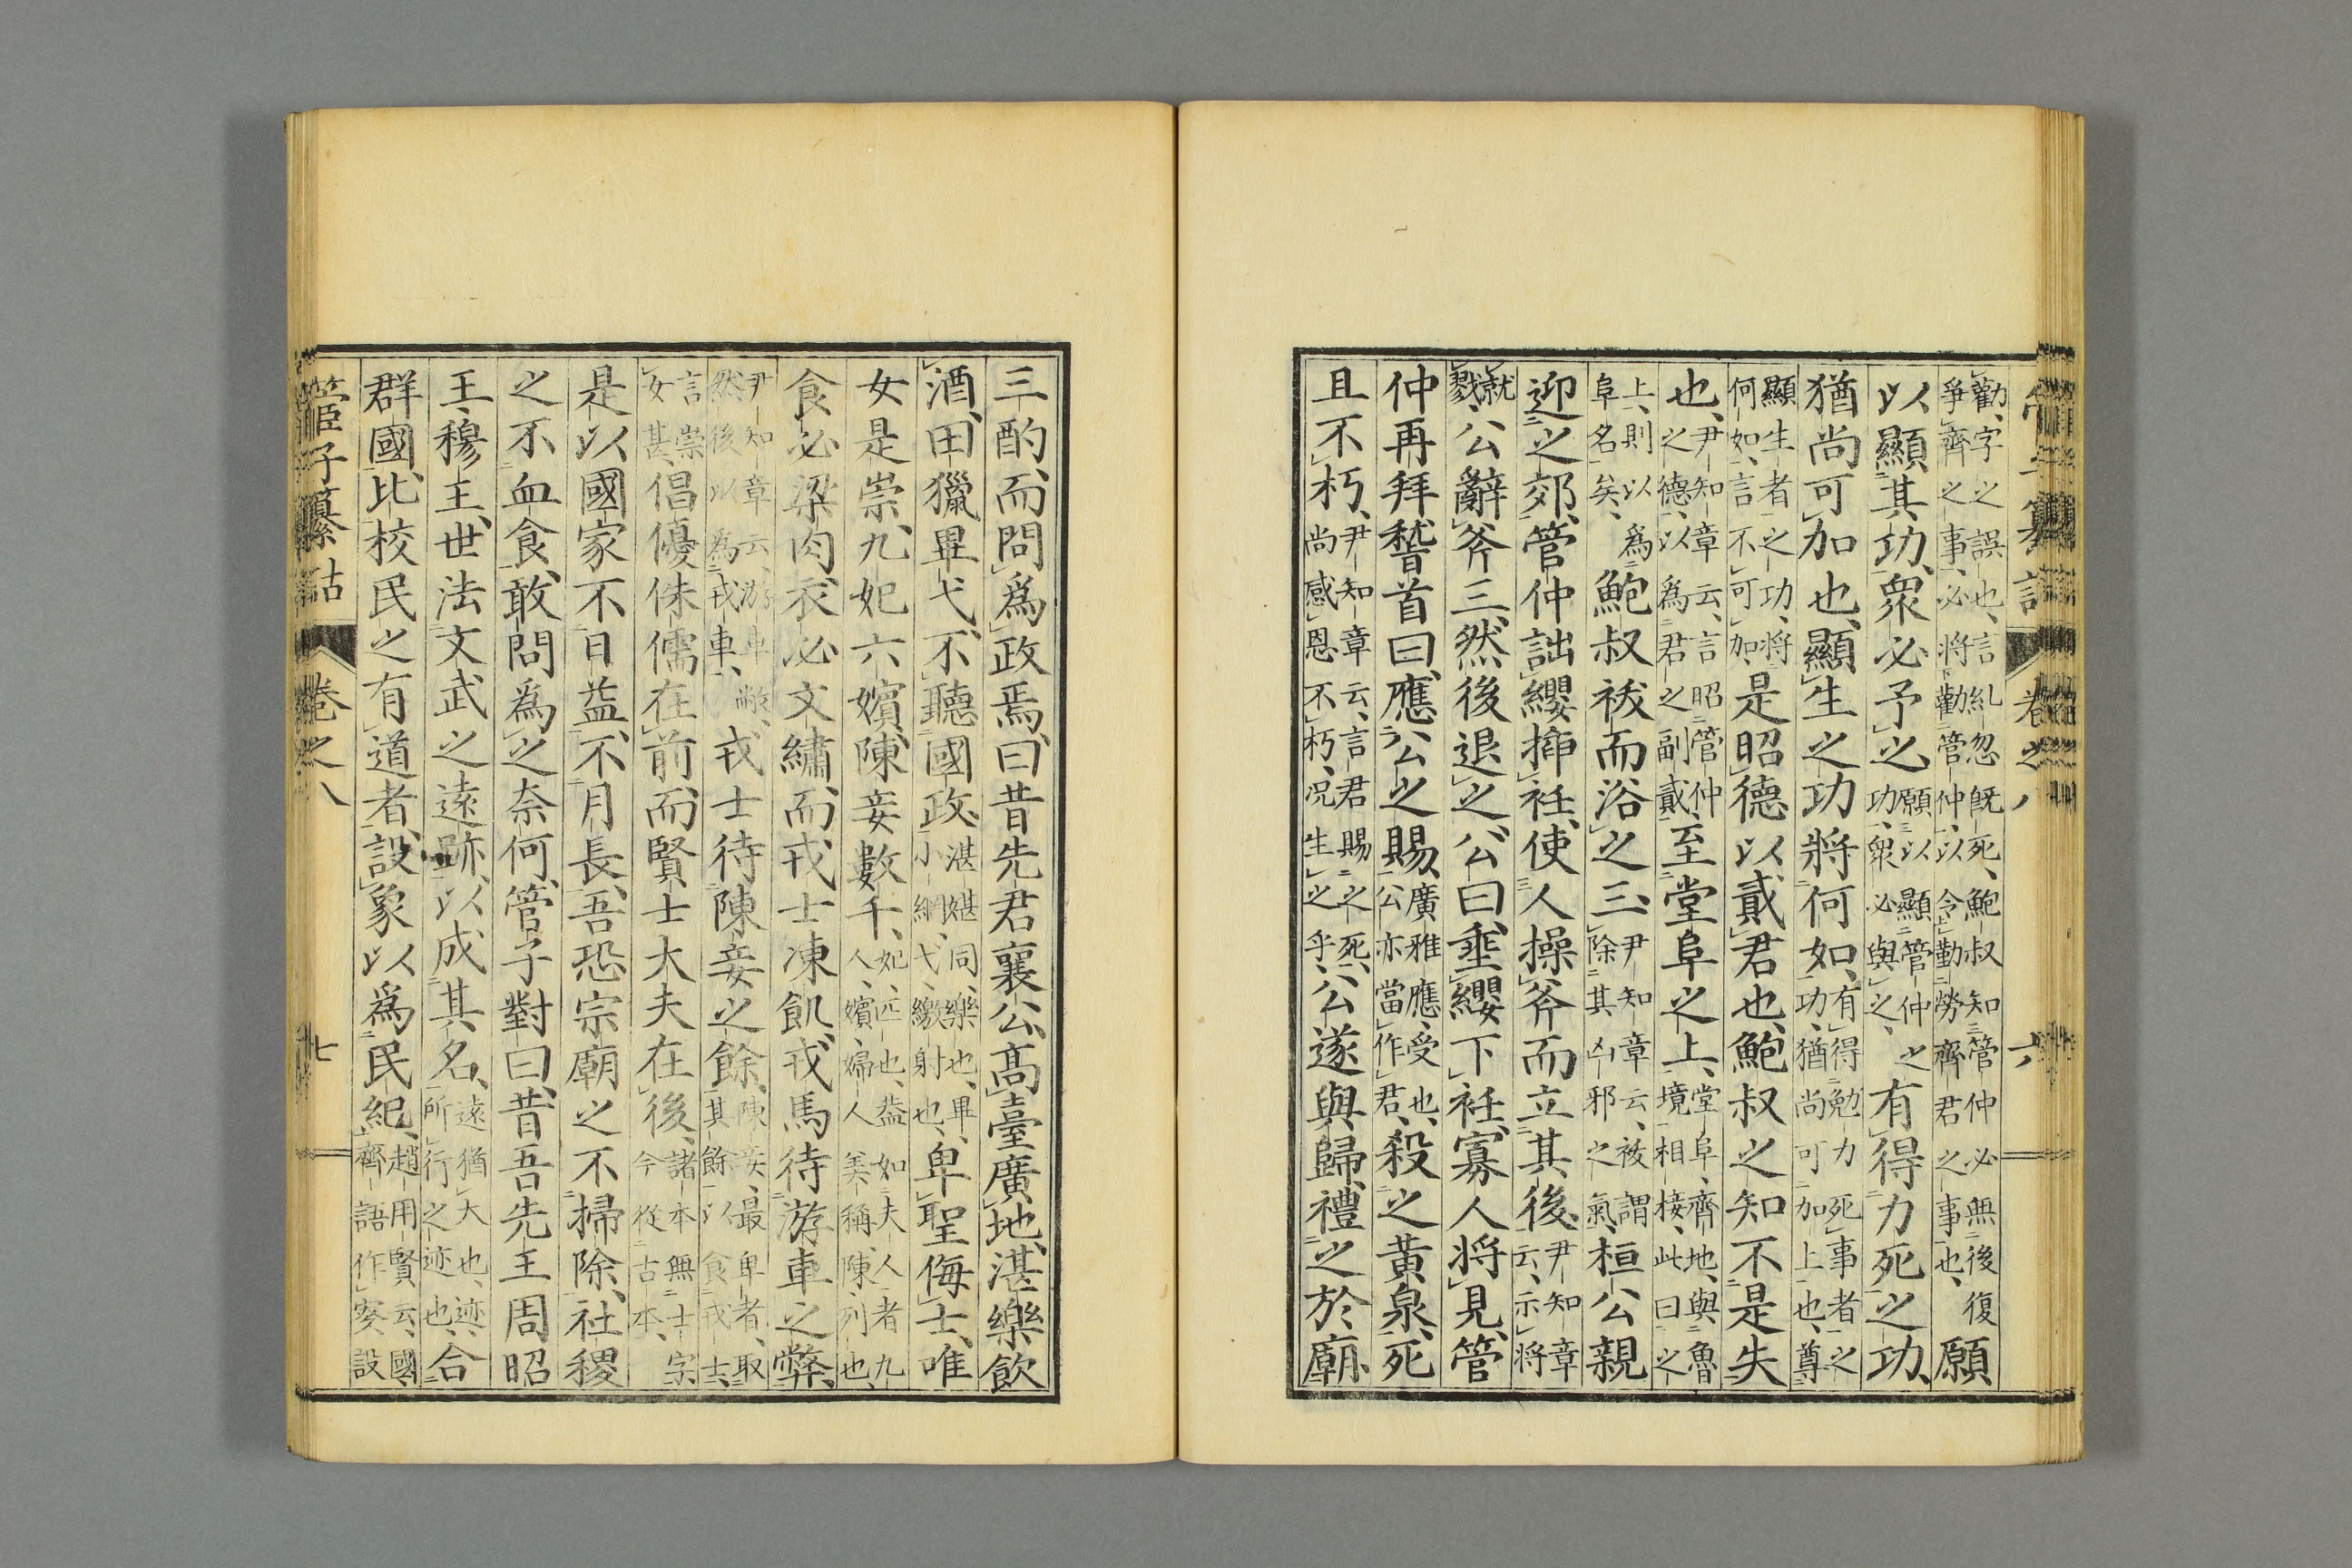 管子纂詁 卷之八 六
勸、字之誤也、言糺忽既死、鮑叔知管仲必無後復
爭齊之事、必將勸管仲、以令勤勞齊君之事也、願
以顯其功、衆必予之、願以顯管仲之
功、衆必與之、有得力死之功、
猶尚可加也、顯生之功將何如、有得勉力死事者之
功、猶尚可加上也、尊
顯生者之功、將
何如、言不可加、是昭德以貳君也、鮑叔之知不是失
也、尹知章云、言昭管仲
之德、以爲君之副貳、至堂阜之上、堂阜、齊地、與魯
境相接、此曰之
上、則以爲
阜名矣、鮑叔祓而浴之三、尹知章云、祓謂
除其凶邪之氣、桓公親
迎之郊、管仲詘纓揷衽、使人操斧而立其後、尹知章
云、示將
就
戮、公辭斧三、然後退之、公曰、垂纓下衽、寡人將見、管
仲再拜稽首曰、應公之賜、廣雅應、受也、
公亦當作君、殺之黃泉、死
且不朽、尹知章云、言君賜之死、
尚感恩不朽、況生之乎、公遂與歸、禮之於廟、
三酌、而問爲政焉、曰昔先君襄公、高臺廣地、湛樂飲
酒、田獵畢弋、不聽國政、湛媅同、樂也、畢、
小網、弋、繳射也、卑聖侮士、唯
女是崇、九妃六嬪、陳妾數千、妃、匹也、葢如夫人者九
人、嬪、婦人美稱、陳、列也、
食必粱肉、衣必文繡、而戎士凍飢、戎馬待游車之弊、
尹知章云、游車敝、
然後以爲戎車、戎士待陳妾之餘、陳妾、最卑者、取
其餘以食戎士、
言崇
女甚、倡優侏儒在前、而賢士大夫在後、諸本無士字、
今從古本、
是以國家不日益、不月長、吾恐宗廟之不掃除、社稷
之不血食、敢問爲之奈何、管子對曰、昔吾先王周昭
王、穆王、世法文武之遠跡、以成其名、遠猶大也、迹、
所行之迹也、合
群國、比校民之有道者、設象以爲民紀、趙用賢云、國
齊語作叟、設
管子纂詁 卷之八 七